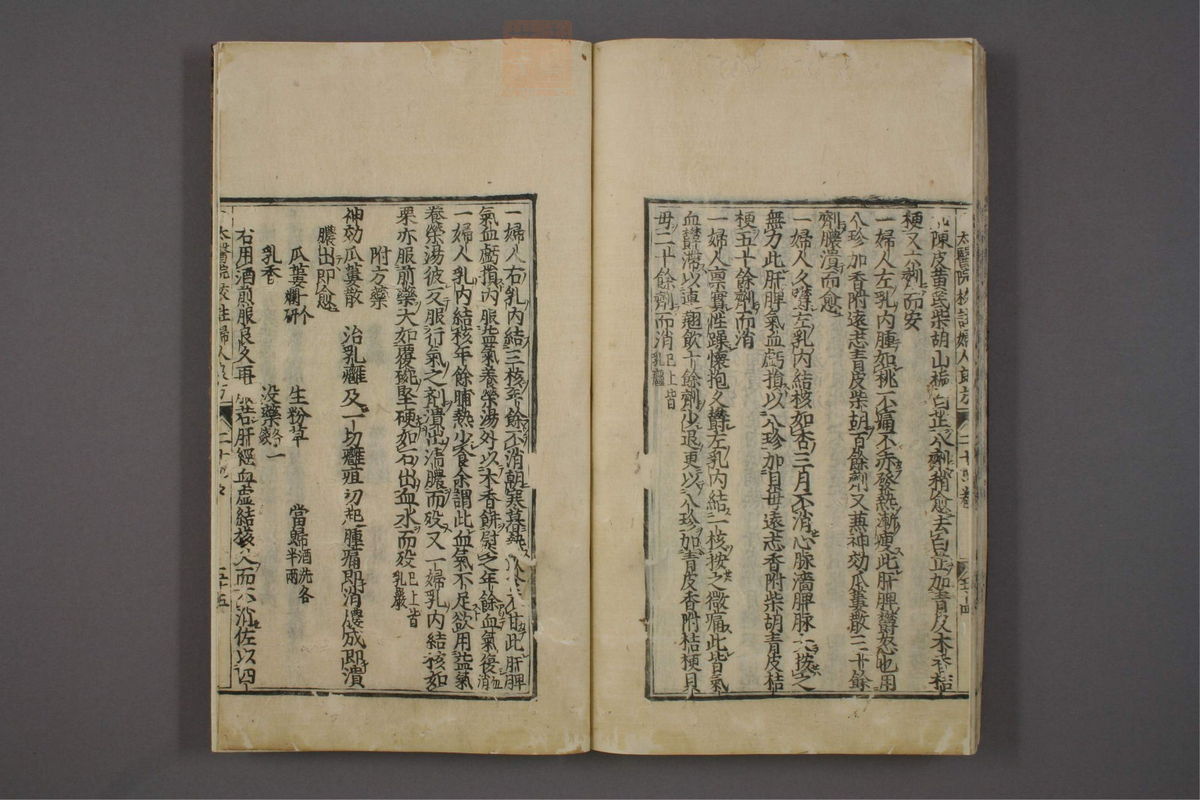 太醫院校註婦人良方 二十四卷
陳皮黃芪柴胡山梔白芷八劑稍愈去白芷加青皮木香桔
梗又六劑而安
一婦人左乳內腫如桃不痛不赤發熱漸瘦此肝脾鬱怒也用
八珍加香附遠志青皮柴胡百餘劑又兼神効瓜蔞散三十餘
劑膿潰而愈
一婦人久鬱左乳內結核如杏三月不消心脈濇脾脈大按之
無力此肝脾氣血虧損以八珍加貝母遠志香附柴胡青皮桔
梗五十餘劑而消
一婦人禀實性躁懷抱久鬱左乳內結一核按之微痛此皆氣
血鬱滯以連翹飲十餘劑少退更以八珍加青皮香附桔梗貝
毋二十餘劑而消已上皆乳癰
一婦人右乳內結三核年餘不消朝寒暮熱此肝脾
氣血虧損內服益氣養榮湯外以木香餅熨之年餘血氣復消
一婦人乳內結核年餘晡熱少食余謂此血氣不足欲用益氣
養榮湯彼又服行氣之剤潰出清膿而殁又一婦乳內結核如
栗亦服前藥大如覆碗堅硬如石出血水而殁已上皆乳巖
附方藥
神効瓜蔞散 治乳癰及一切癰疽初起腫痛即消膿成即潰
膿出即愈
瓜蔞一个爛研 生粉草 當歸酒洗各半兩
乳香 没藥各一錢
右用酒煎服良久再服若肝經血虛結核久而不消佐以四
太醫院校註婦人良方 二十四 五十五